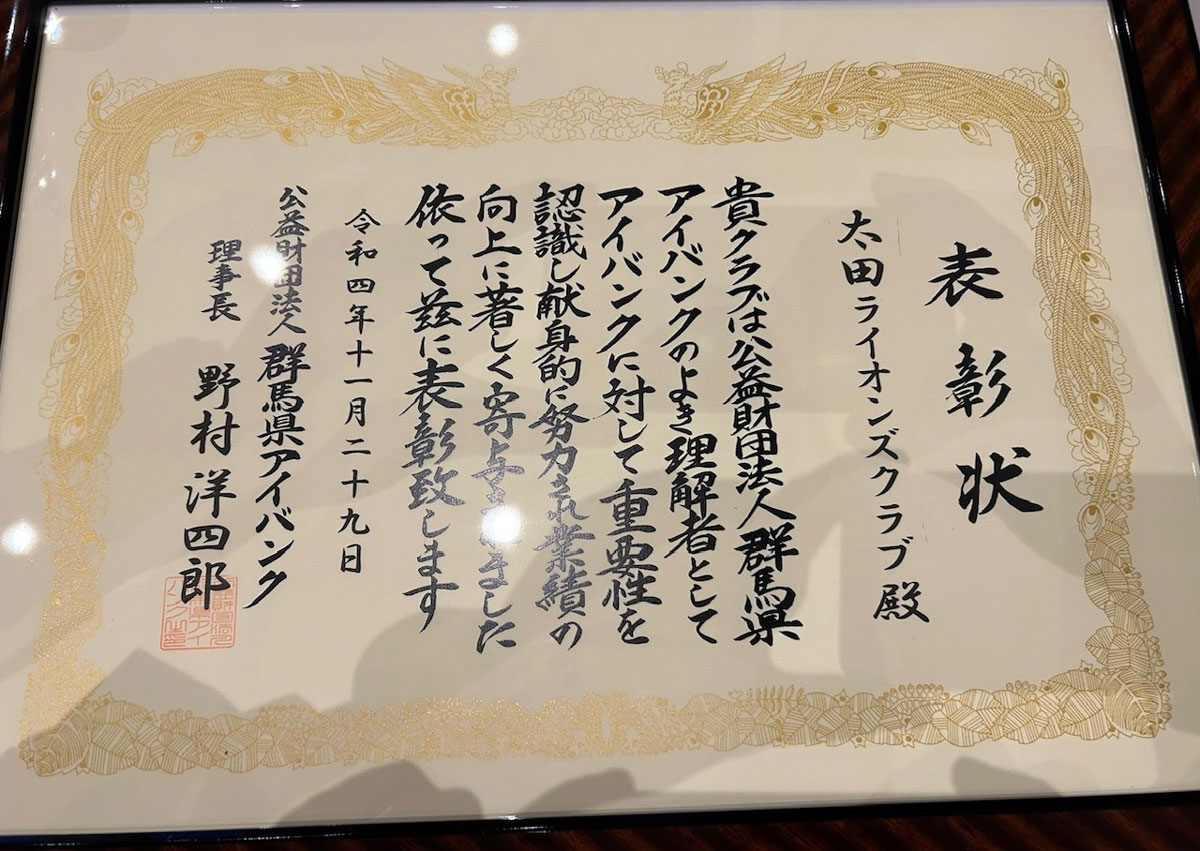 表彰状
太田ライオンズクラブ殿
貴クラブは公益財団法人群馬県
アイバンクのよき理解者として
アイバンクに対して重要性を
認識し献身的に努力され業績の
向上に著しく寄与されました
依って茲に表彰致します
令和四年十一月二十九日
公益財団法人 群馬県アイバンク
理事長 野村洋四郎